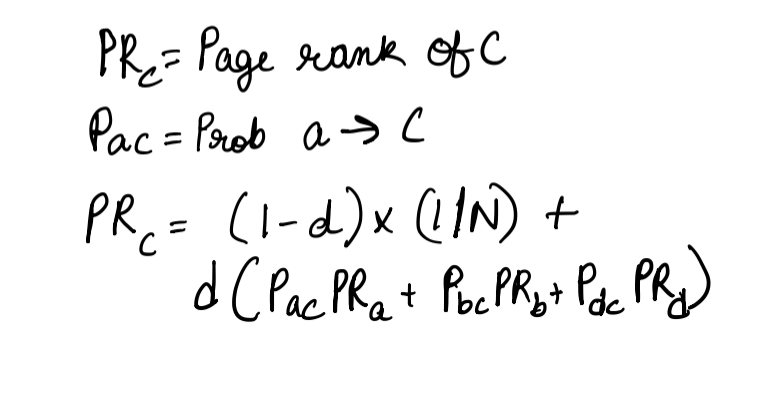 PR_c = Page rank of C
P_ac = Prob a → C
PR_c = (1-d) x (1/N) +
d (P_ac PR_a + P_bc PR_b + P_dc PR_d)